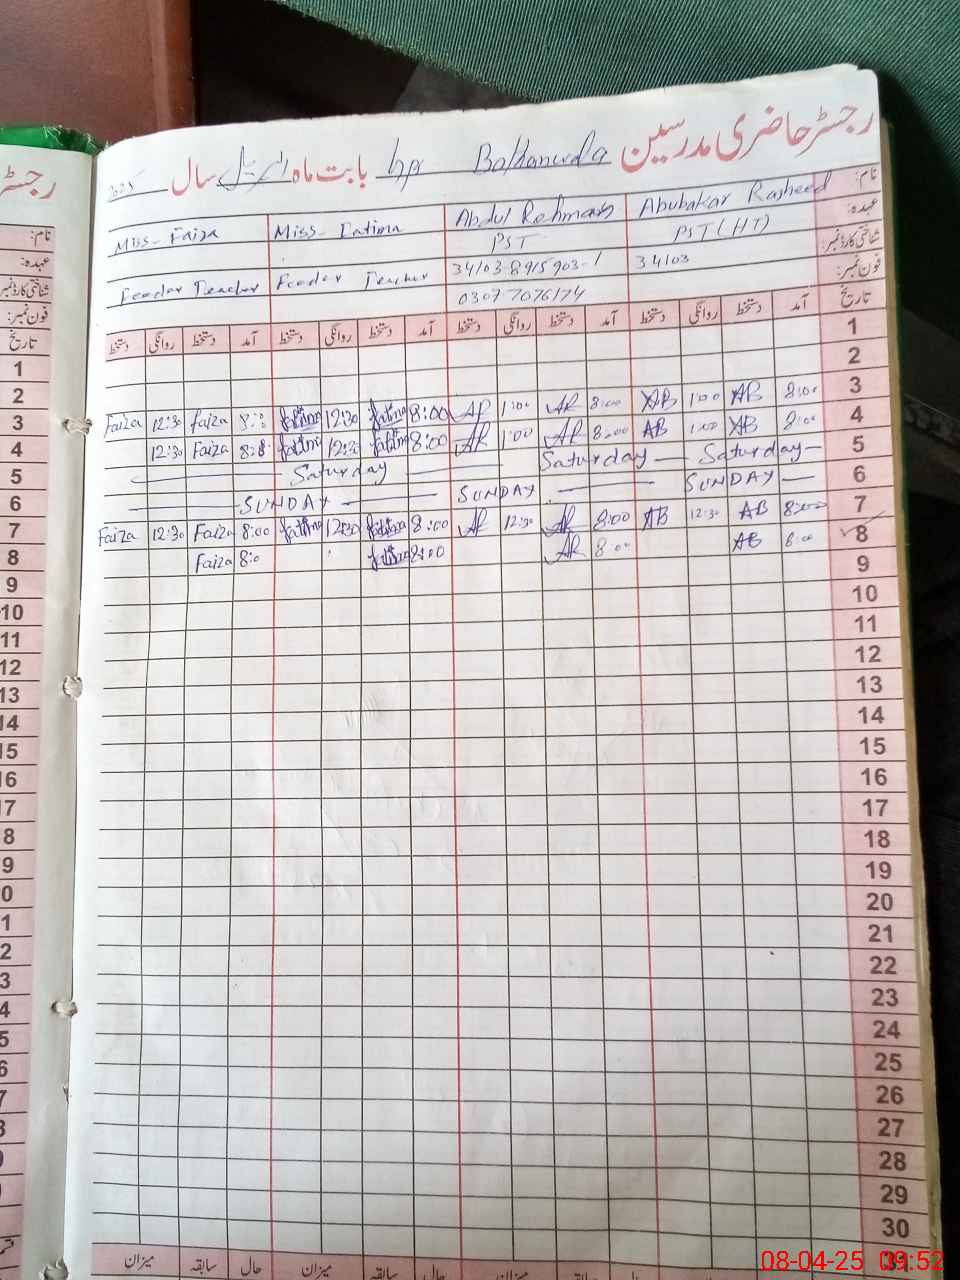 رجسٹر حاضری مدرسین Gps بابت ماہ اپریل سال 2025
نام: Abubakar Rasheed Abdul Rehman Miss Fatima Miss Faiza
عہدہ: PST (HT) PST
شناختی کارڈ نمبر: 34103 34103-8915903-1 Feeder Teacher Feeder Teacher
فون نمبر: 03077076174
تاریخ آمد دستخط روانگی دستخط آمد دستخط روانگی دستخط آمد دستخط روانگی دستخط آمد دستخط روانگی دستخط
1
2
3 8:00 AB 1:00 AB 8:00 AR 1:00 AR 8:00 fatima 12:30 fatima 8:00 Faiza 12:30 Faiza
4 8:00 AB 1:00 AB 8:00 AR 1:00 AR 8:00 fatima 12:30 fatima 8:00 Faiza 12:30
5 Saturday Saturday Saturday
6 SUNDAY SUNDAY SUNDAY
7 8:00 AB 12:30 AB 8:00 AR 12:30 AR 8:00 fatima 12:30 fatima 8:00 Faiza 12:30 Faiza
8 8:00 AB 8:00 AR 8:00 fatima 8:0 Faiza
9
10
11
12
13
14
15
16
17
18
19
20
21
22
23
24
25
26
27
28
29
30
31
حال سابقہ میزان حال سابقہ میزان
رجسٹر
نام:
عہدہ:
شناختی کارڈ نمبر
فون نمبر:
تاریخ
1
2
3
4
5
6
7
8
9
10
11
12
13
14
15
16
17
8
9
0
1
2
3
4
5
6
7
8
08-04-25 09:52